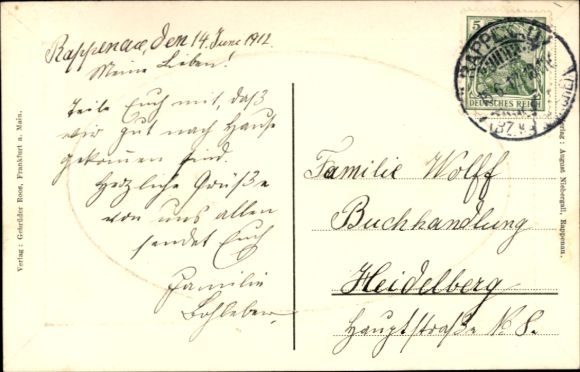 Rappenau, den 14. Juni 1912.
Meine Lieben!
Teile Euch mit, daß
wir gut nach Hause
gekommen sind.
Herzliche Grüße
von uns allen
sendet Euch
Familie
Familie Wolff
Buchhandlung
Heidelberg
Hauptstraße N 8.
Verlag: Gebrüder Roos, Frankfurt a. Main.
Verlag: August Niebergall, Rappenau.
5
DEUTSCHES REICH
RAPPENAU